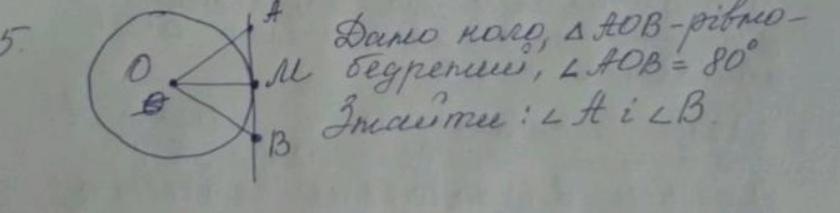 5.
A
Дано коло, △AOB-рівно-
O
M
бедрений, ∠AOB = 80°
B
Знайти: ∠A і ∠B.